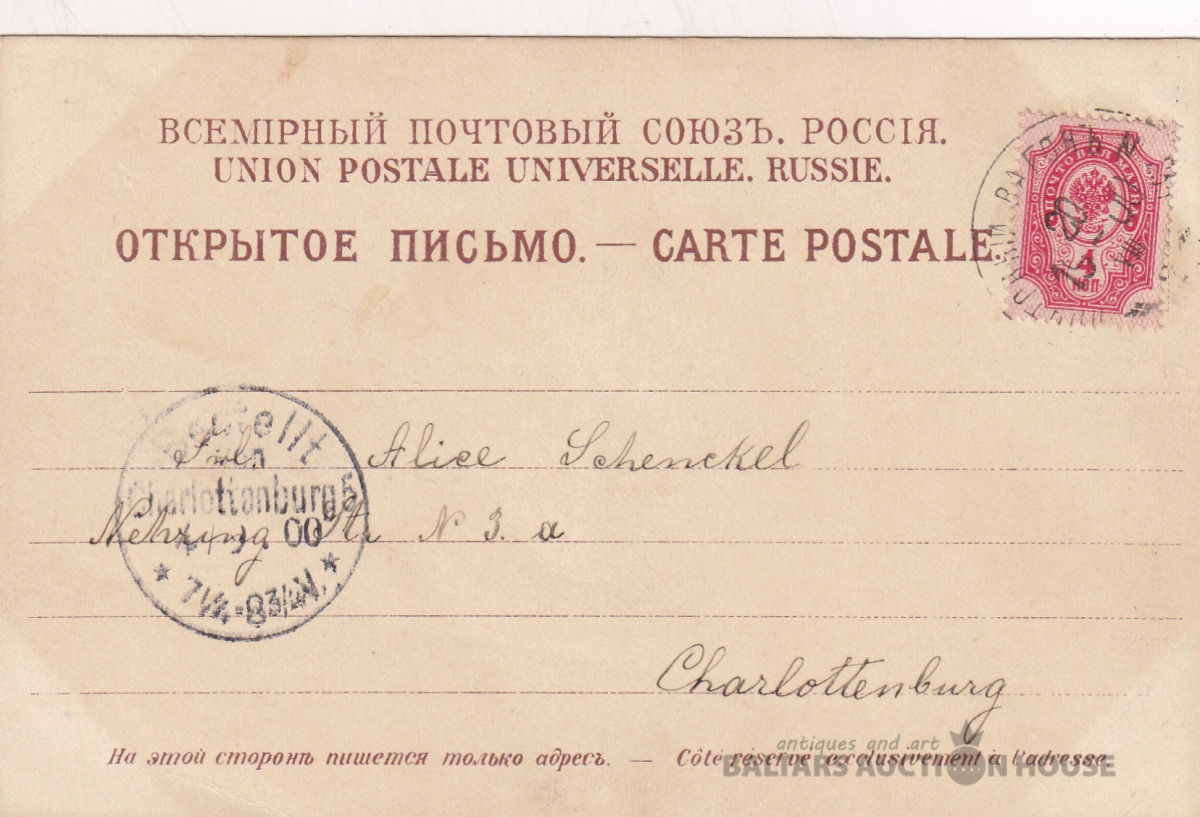 ВСЕМІРНЫЙ ПОЧТОВЫЙ СОЮЗЪ. РОССІЯ.
UNION POSTALE UNIVERSELLE. RUSSIE.
ОТКРЫТОЕ ПИСЬМО. — CARTE POSTALE.
ПОЧТОВАЯ МАРКА
4
КОП
ПОЧТОВЫЙ ВАГОНЪ
Bestellt
Charlottenburg 5
00
7 1/4-8 3/4 V.
Alice Schenckel
Nehring Str N 3. a
Charlottenburg
На этой сторонѣ пишется только адресъ. — Côté réservé exclusivement à l'adresse.
antiques and art
BALIARS AUCTION HOUSE